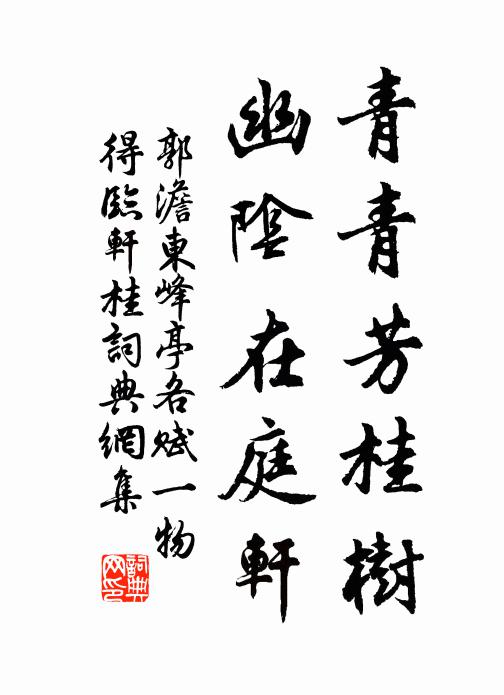 青青芳桂樹
幽陰在庭軒
郭澹東峰亭各賦一物
得臨軒桂詞典網集
詞典
网印